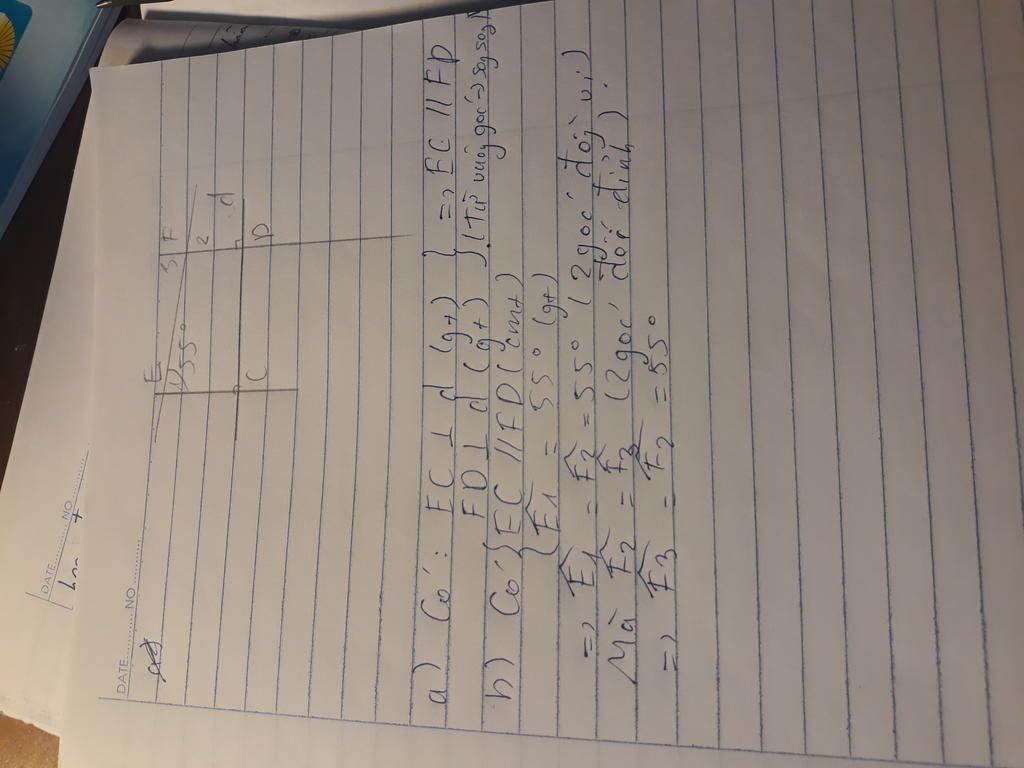 DATE
NO
DATE
NO
E
F
3
1
55°
2
C
D
d
a) Có: EC ⊥ d (gt) } => EC // FD
FD ⊥ d (gt) } (Từ vuông góc -> song song)
b) Có { EC // FD (cmt)
{ Ê1 = 55° (gt)
=> Ê1 = F̂2 = 55° (2 góc đồng vị)
Mà F̂2 = F̂3 (2 góc đối đỉnh).
=> F̂3 = F̂2 = 55°